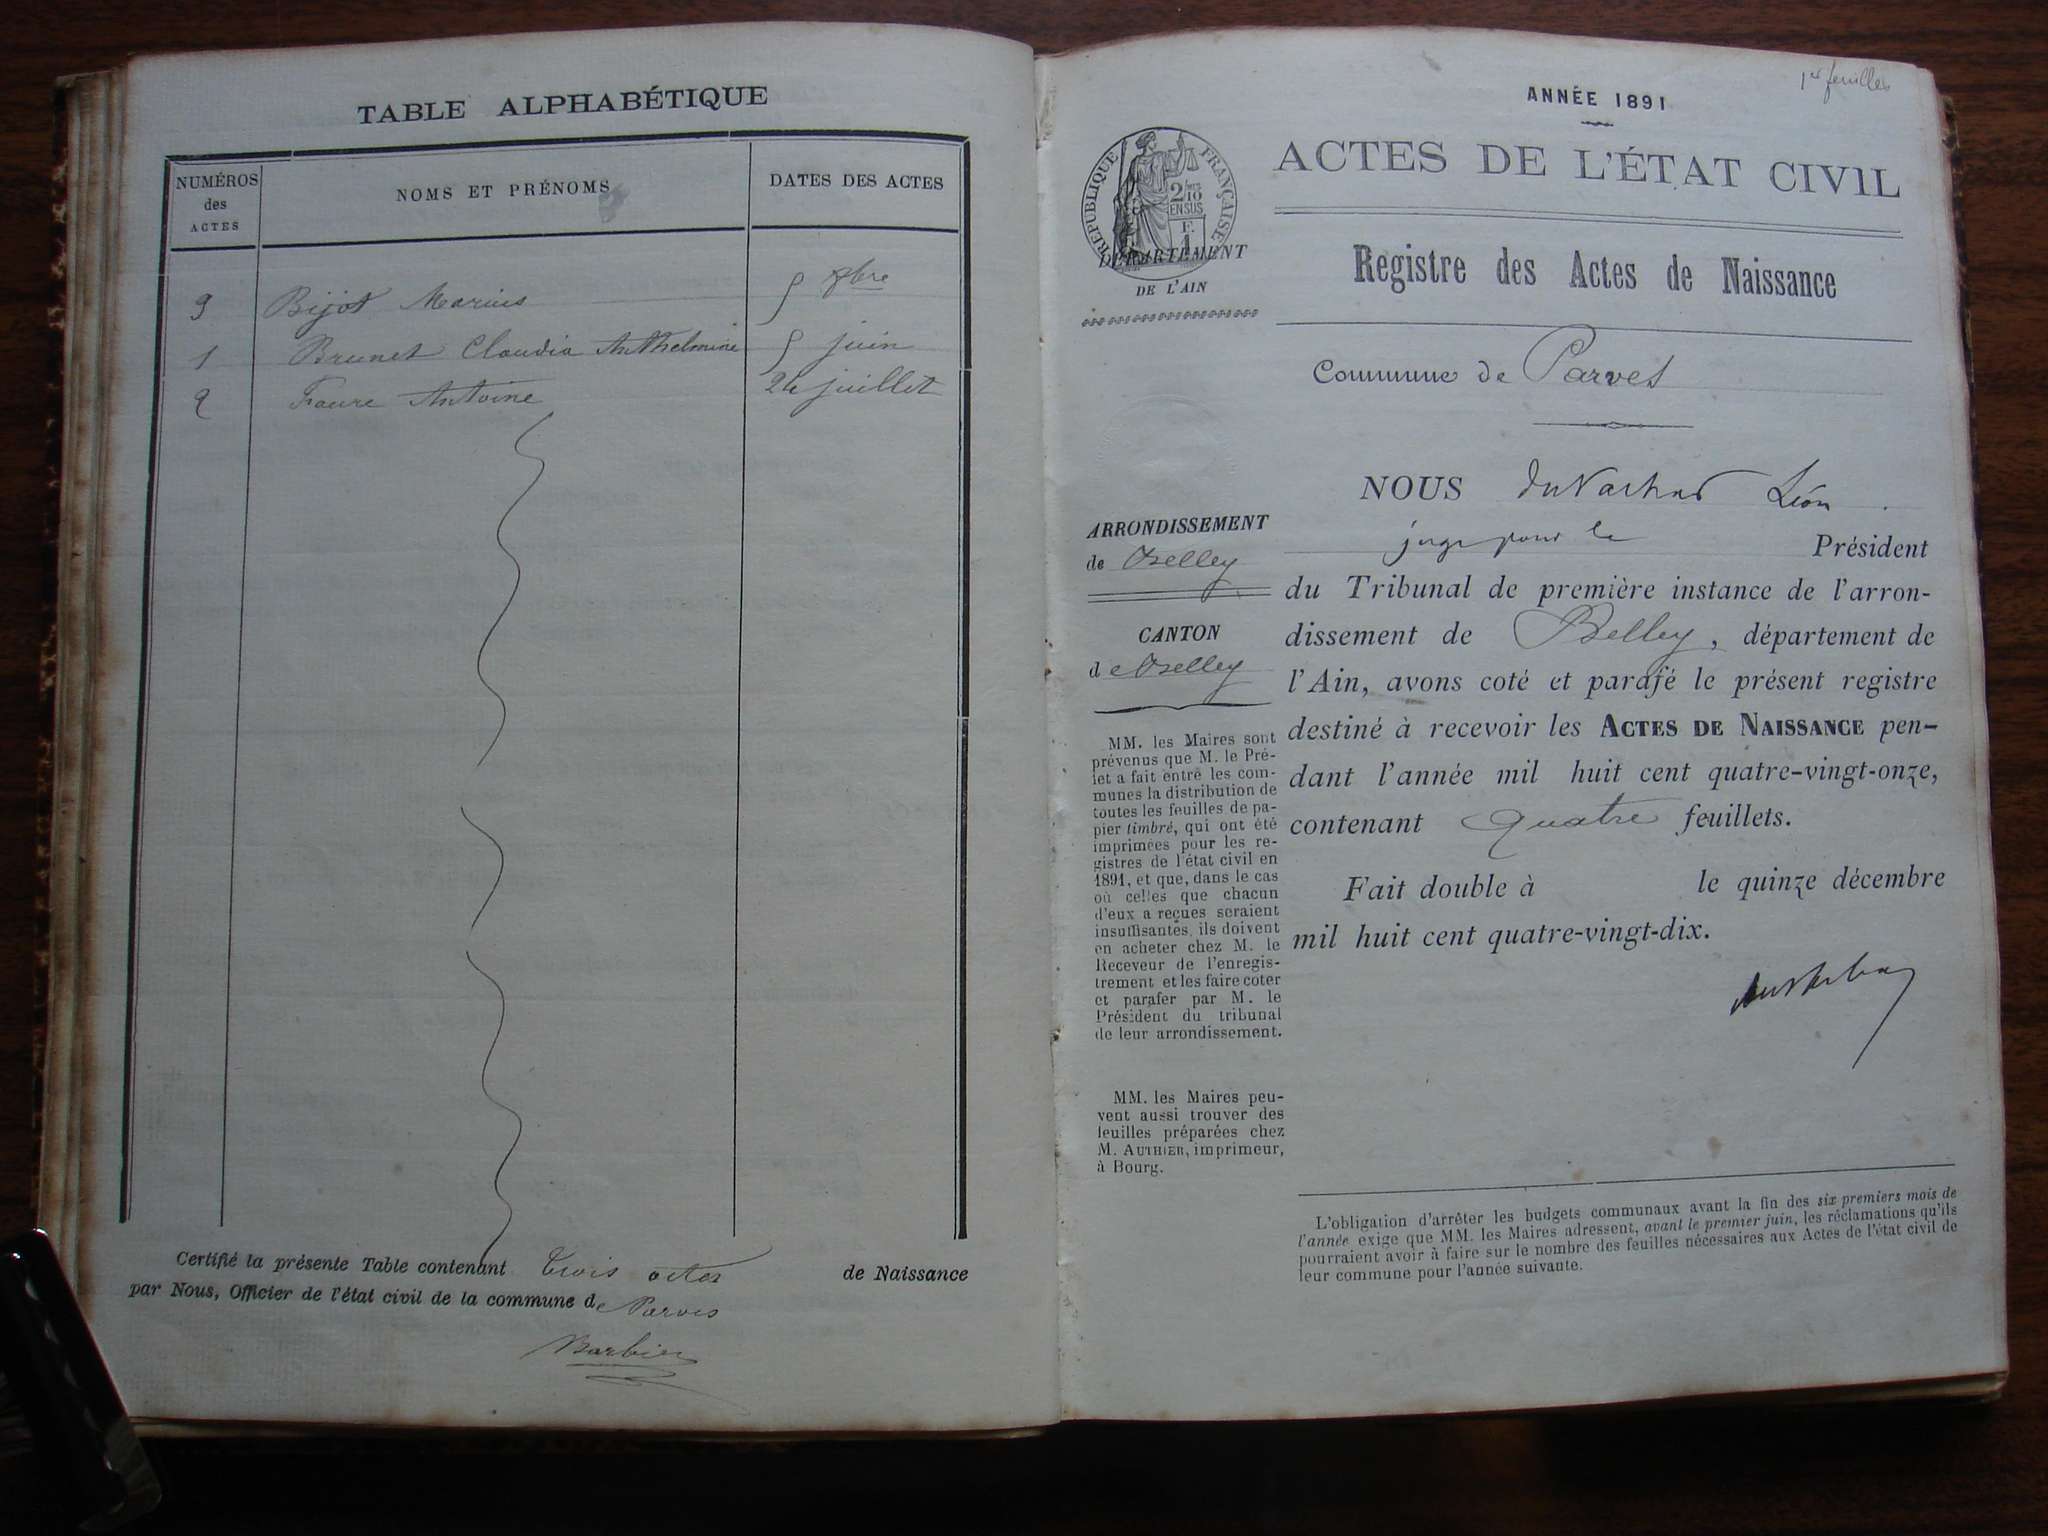 TABLE ALPHABÉTIQUE
NUMÉROS des ACTES
NOMS ET PRÉNOMS
DATES DES ACTES
3 Bijot Marius 5 8bre
1 Brunet Claudia Anthelmine 5 juin
2 Faure Antoine 24 juillet
Certifié la présente Table contenant trois actes de Naissance
par Nous, Officier de l'état civil de la commune de Parves
Barbier
1er feuillet
ANNÉE 1891
RÉPUBLIQUE FRANÇAISE
2/10 EN SUS
F. 1
DÉPARTEMENT
DE L'AIN
ACTES DE L'ÉTAT CIVIL
Registre des Actes de Naissance
Commune de Parves
ARRONDISSEMENT
de Belley
CANTON
de Belley
MM. les Maires sont
prévenus que M. le Pré-
fet a fait entre les com-
munes la distribution de
toutes les feuilles de pa-
pier timbré, qui ont été
imprimées pour les re-
gistres de l'état civil en
1891, et que, dans le cas
où celles que chacun
d'eux a reçues seraient
insuffisantes, ils doivent
en acheter chez M. le
Receveur de l'enregis-
trement et les faire coter
et parafer par M. le
Président du tribunal
de leur arrondissement.
MM. les Maires peu-
vent aussi trouver des
feuilles préparées chez
M. AUTHIER, imprimeur,
à Bourg.
NOUS Léon
juge pour le Président
du Tribunal de première instance de l'arron-
dissement de Belley, département de
l'Ain, avons coté et parafé le présent registre
destiné à recevoir les ACTES DE NAISSANCE pen-
dant l'année mil huit cent quatre-vingt-onze,
contenant quatre feuillets.
Fait double à le quinze décembre
mil huit cent quatre-vingt-dix.
L'obligation d'arrêter les budgets communaux avant la fin des six premiers mois de
l'année exige que MM. les Maires adressent, avant le premier juin, les réclamations qu'ils
pourraient avoir à faire sur le nombre des feuilles nécessaires aux Actes de l'état civil de
leur commune pour l'année suivante.